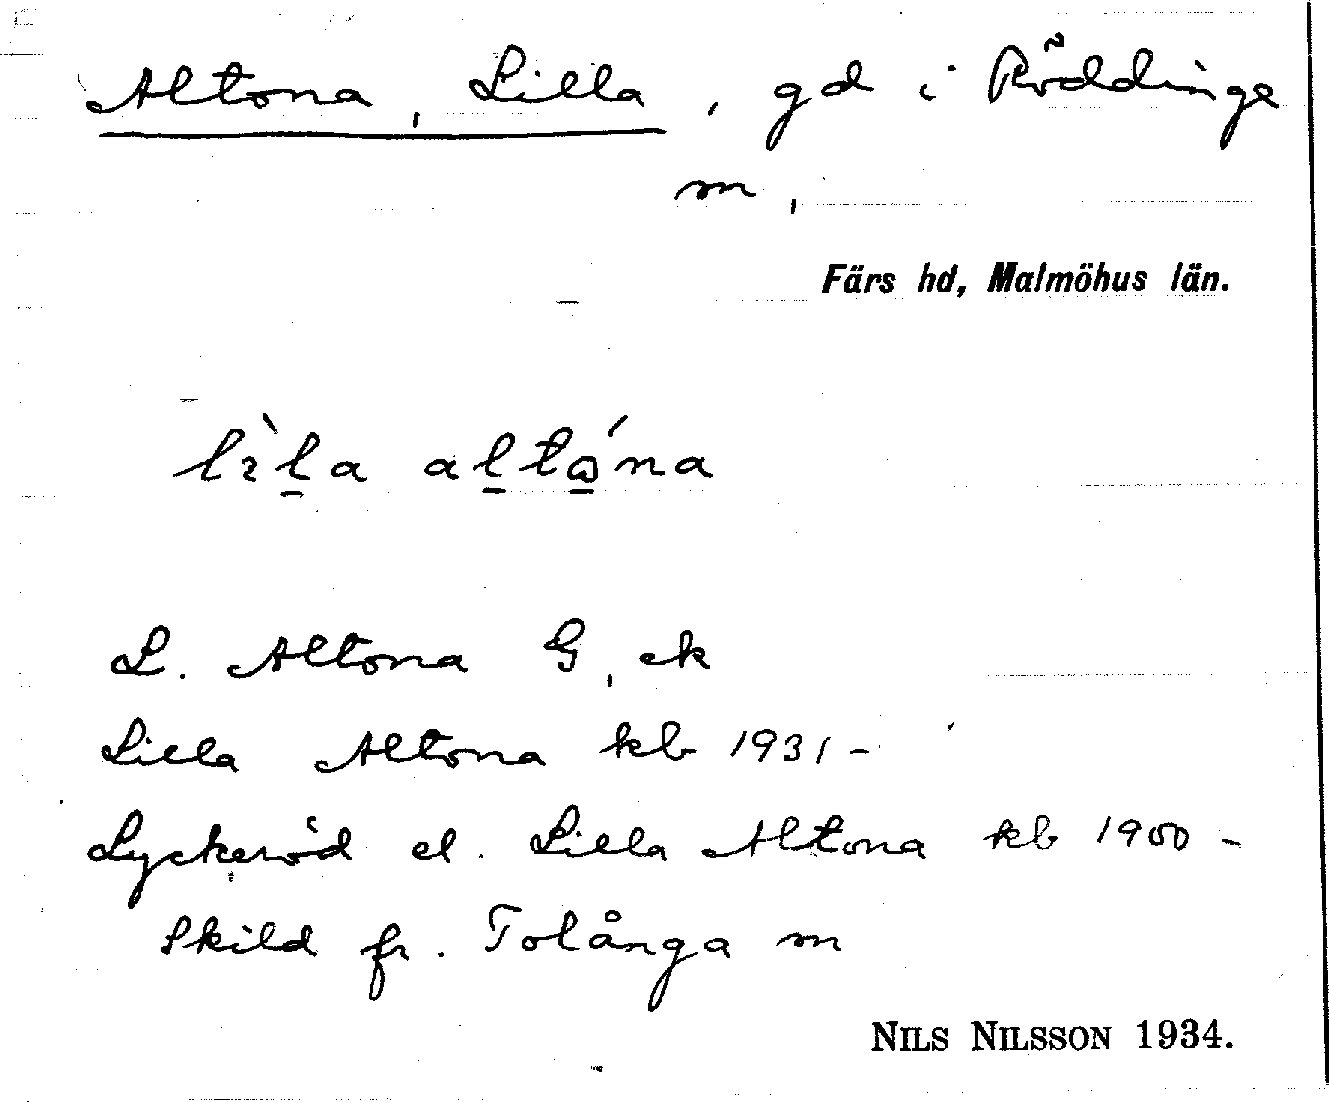 Altona, Lilla, gd i Röddinge
m,
Färs hd, Malmöhus län.
lìla altǫ́na
L. Altona G, ek
Lilla Altona kb 1931-
Lyckeröd el. Lilla Altona kb 1900-
Skild fr. Tolånga m
NILS NILSSON 1934.